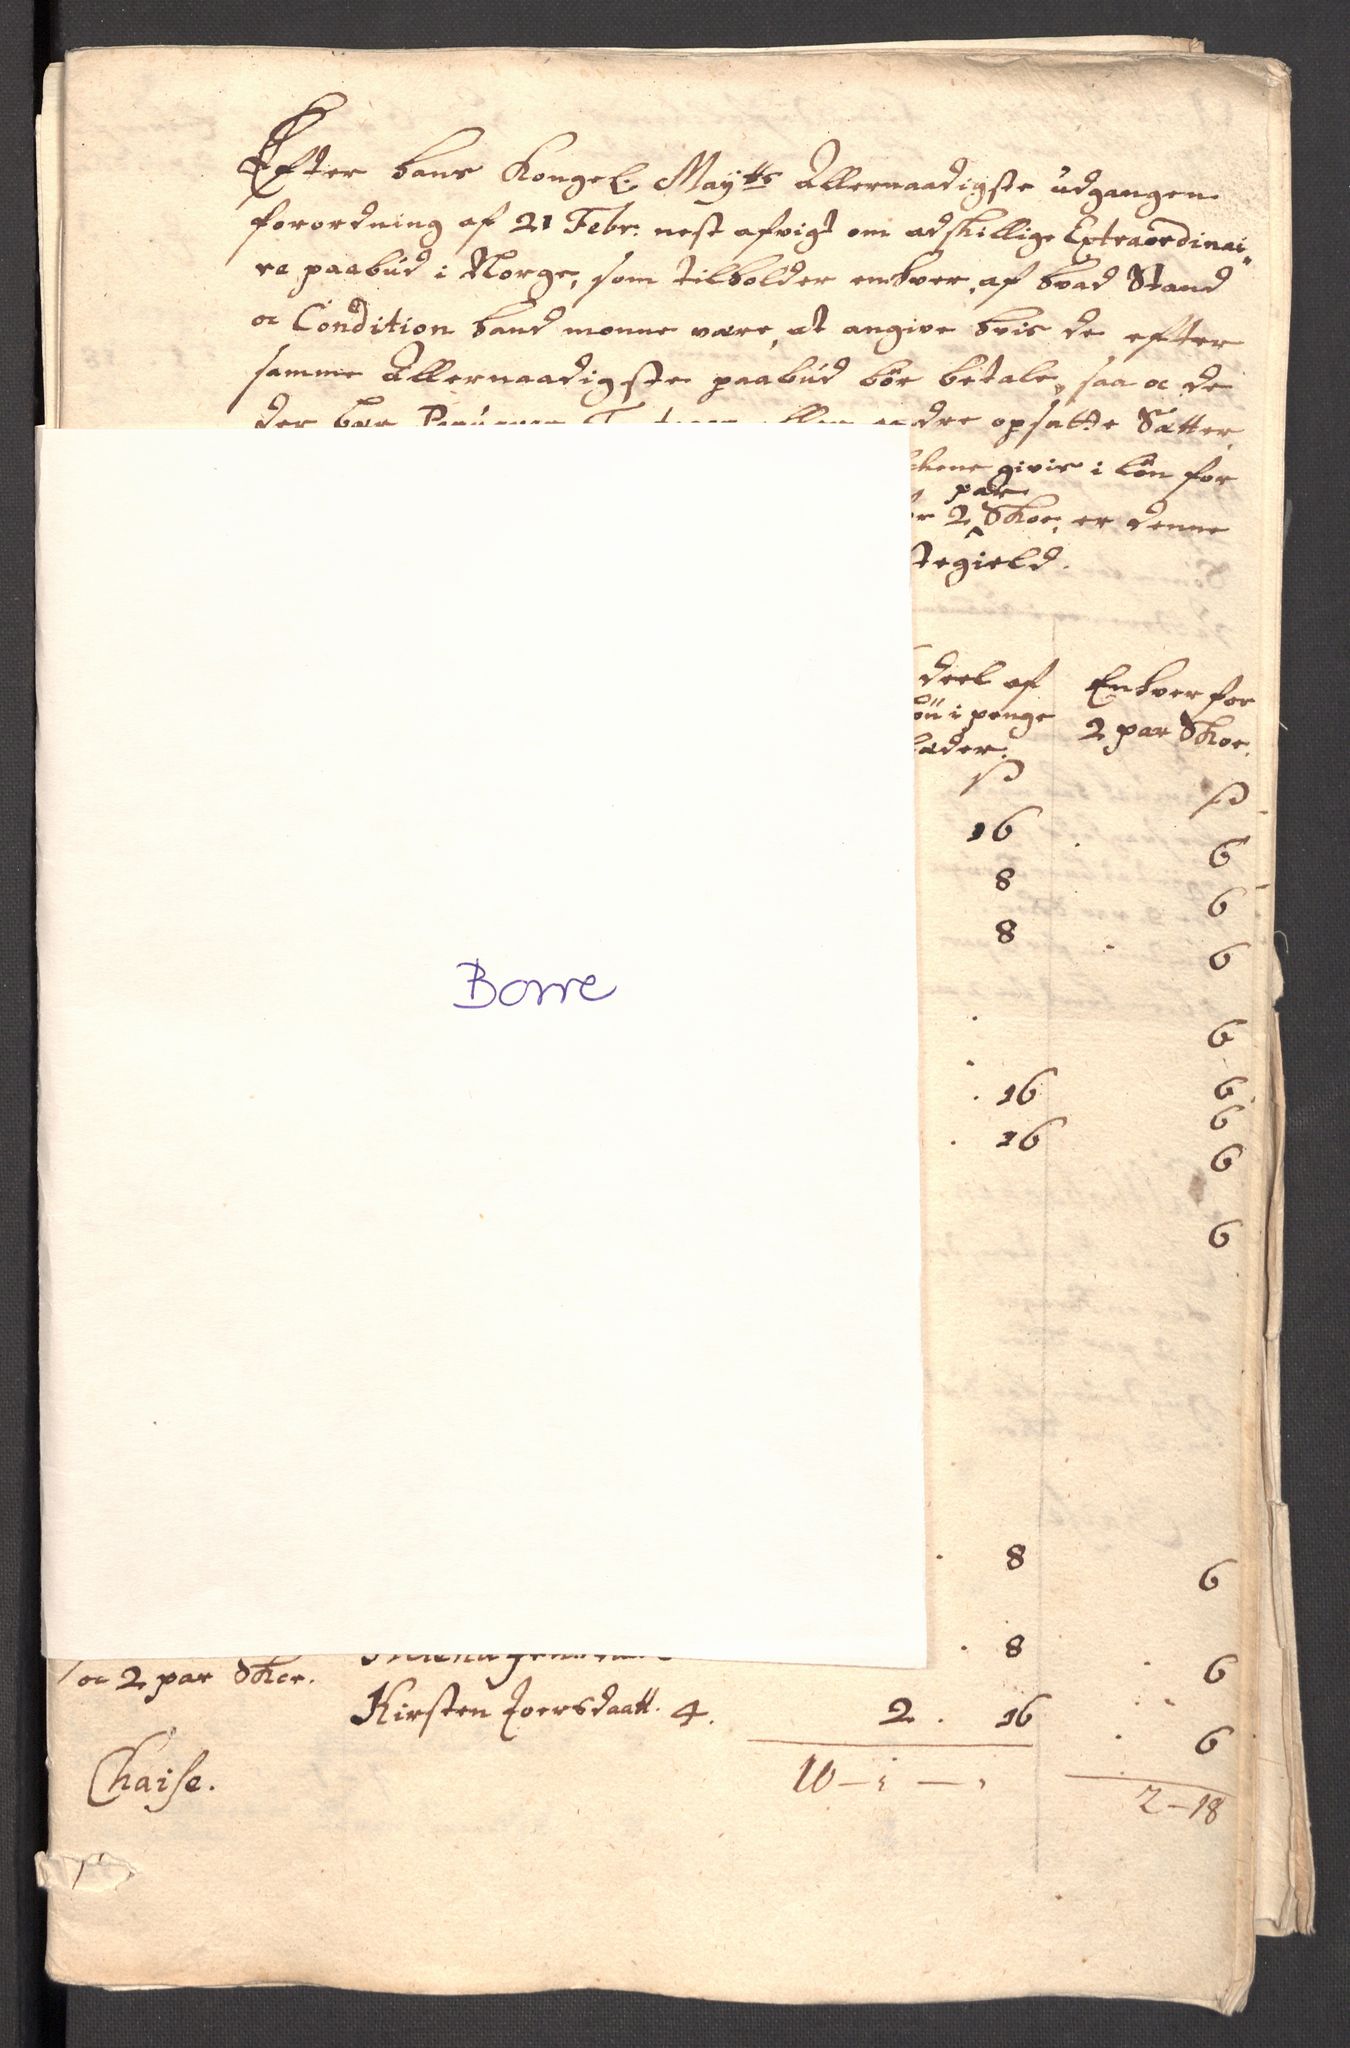 Efter hans Kongel. Maytts Allernaadigste udgangen
forordning af 21 Febr. nest afvigt om adskillige Extraordinai„
re paabud i Norge, som tilholder enhver, af hvad Stand
oc Condition hand monne være, at angive hvis de efter
samme Allernaadigste paabud bør betale, saa oc de
der bær andre opsatte Sætter,
givis i løn for
par
2 Skoe, er denne
tegield.
deel af
i penge
Enhver for
2 par Skoe.
ß
ß
16
6
8
6
8
6
6
16
6
6
16
6
6
Borre
8
6
8
oc 2 par Skoe.
6
Kirsten Joersdaatt. 4.
2. 16
6
Chaise.
10 — 1 —
2 — 18